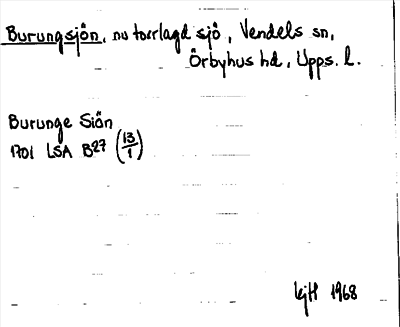 Burungsjön, nu torrlagd sjö, Vendels sn,
Örbyhus hd, Upps. l.
Burunge Siön
1701 LSA B27 (13/1)
KjH 1968